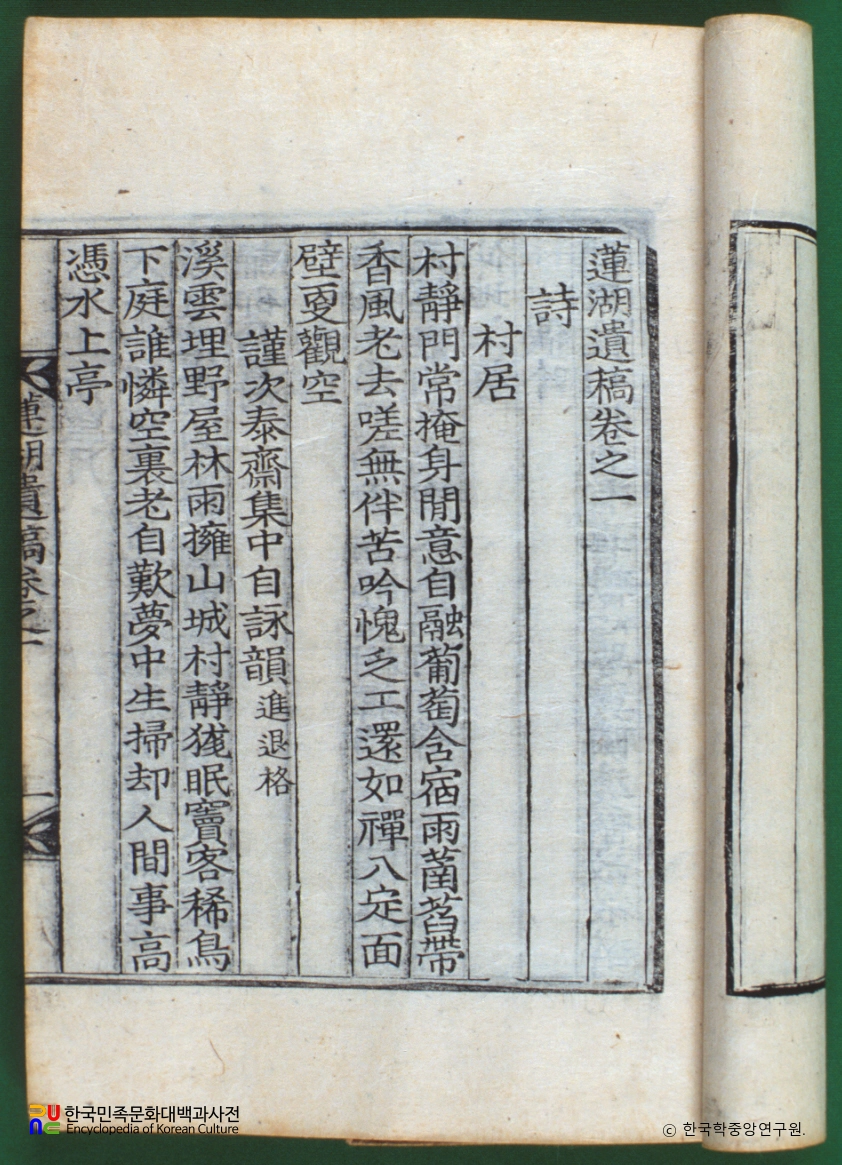 蓮湖遺稿卷之一
詩
村居
村靜門常掩身閒意自融葡萄含宿雨菡萏帶
香風老去嗟無伴苦吟愧乏工還如禪入定面
壁更觀空
謹次泰齋集中自詠韻進退格
溪雲埋野屋林雨擁山城村靜眠竇客稀鳥
下庭誰憐空裏老自歎夢中生掃却人間事高
憑水上亭
蓮湖遺稿卷之一
一
한국민족문화대백과사전
Encyclopedia of Korean Culture
ⓒ 한국학중앙연구원.